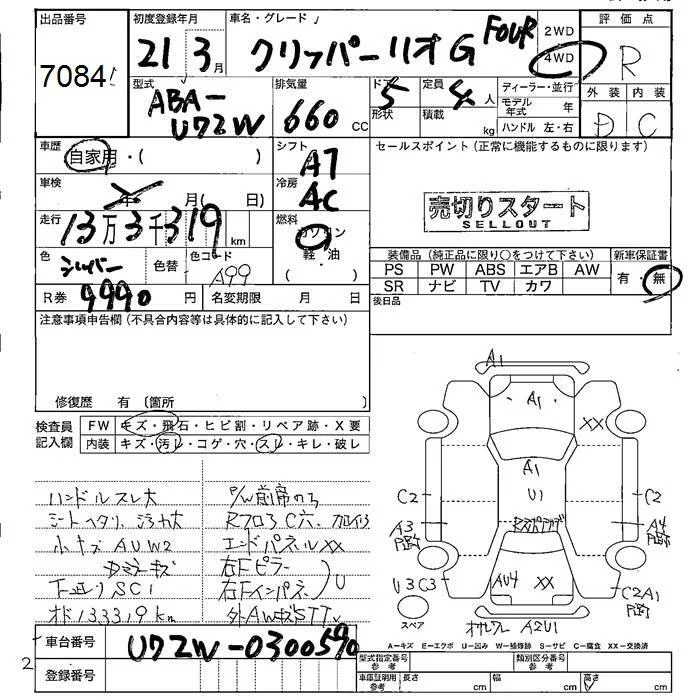 出品番号
7084
初度登録年月
21 3月
車名・グレード
クリッパーリオG FOUR
2WD
4WD
評価点
R
外装 内装
D C
型式
ABA-
U72W
排気量
660 CC
ドア
5
形状
定員
4人
積載
kg
ディーラー・並行
モデル年式 年
ハンドル 左・右
車歴
自家用・( )
シフト
AT
セールスポイント(正常に機能するものに限ります)
売切りスタート
SELLOUT
車検
年 月( 日)
冷房
AC
走行
13万3千319km
燃料
ガソリン
軽・油
( )
色
シルバー
色替
色コード
A99
装備品(純正品に限り○をつけて下さい)
PS PW ABS エアB AW
SR ナビ TV カワ
新車保証書
有・無
R券 9990円
名変期限 月 日
後日品
注意事項申告欄(不具合内容等は具体的に記入して下さい)
修復歴 有(箇所
検査員
記入欄
FW キズ・飛石・ヒビ割・リペア跡・X要
内装 キズ・汚レ・コゲ・穴・スレ・キレ・破レ
ハンドルスレ大
シートヘタリ、汚れ大
小キズAUW2
下廻りSC1
オド133319km
P/W前席のみ
Rフロア3C穴、加修
エンドパネルXX
右Fピラー
右Fインパネ
U
A1
A1
XX
A1
U1
C2
C2
A3
A4
AU4
XX
U3C3
C2A1
スペア
A2U1
A=キズ E=エクボ U=凹み W=補修跡 S=サビ C=腐食 XX=交換済
車台番号
U72W-0300590
登録番号
2
型式指定番号
参考
類別区分番号
参考
車庫証明用
参考
長さ cm 幅 cm 高さ cm